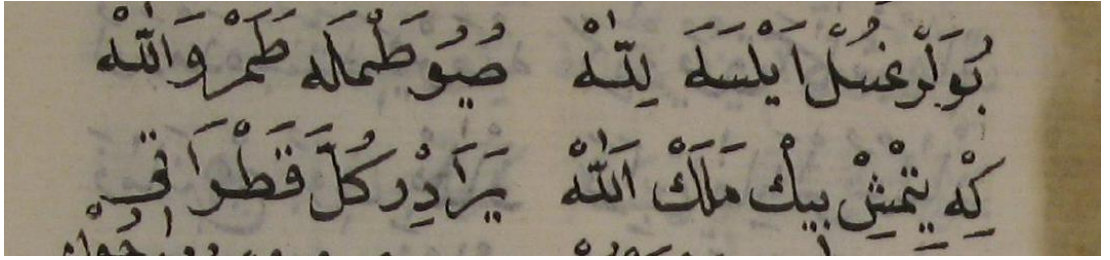 بُوَلَرْ غُسُلْ اَيْلَسَهَ لِلّٰهْ صُيُو طَمْلَهَ طَمَرْ وَاللّٰهْ
كِهْ يِتْمِشْ بِيكْ مَلَكْ اَللّٰهْ يَرَادِرْ كُلَّ قَطْرَاتِى